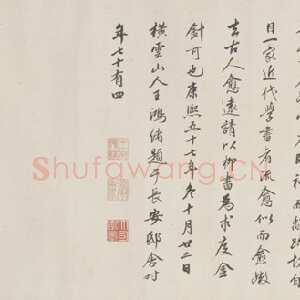 目一家近代學書者流愈似而愈
去古人愈遠請以柳書為求度金
針可也康熙五十七年冬十月廿二日
橫雲山人王鴻緒題于長安邸舍時
年七十有四
Shufawang.CN